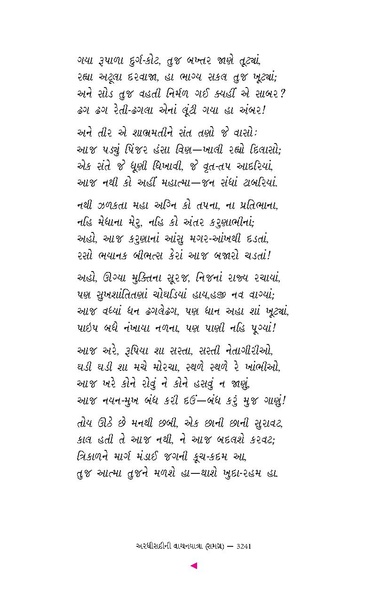 ગયા રૂપાળા દુર્ગ-કોટ, તુજ બખ્તર જાણે તૂટ્યાં,
રહ્યા અટૂલા દરવાજા, હા ભાગ્ય સકલ તુજ ખૂટ્યાં;
અને સોડ તુજ વહતી નિર્મળ ગઈ ક્યહીં એ સાબર?
ઢગ ઢગ રેતી-ઢગલા એનાં લૂંટી ગયા હા અંબર!
અને તીર એ શાભ્રમતીને સંત તણો જે વાસો:
આજ પડ્યું પિંજર હંસા વિણ—ખાલી રહ્યો દિલાસો;
એક સંતે જે ધૂણી ધિખાવી, જે વૃત-તપ આદરિયાં,
આજ નથી કો અહીં મહાત્મા—જન સંધાં ટાબરિયાં.
નથી ઝળકતા મહા અગ્નિ કો તપના, ના પ્રતિભાના,
નહિ મેધાના મેરુ, નહિ કો અંતર કરુણાભીનાં;
અહો, આજ કરુણાનાં આંસુ મગર-આંખથી દડતાં,
રસો ભયાનક બીભત્સ કેરાં આજ બજારો ચડતાં!
અહો, ઊગ્યા મુક્તિના સૂરજ, નિજનાં રાજ્ય રચાયાં,
પણ સુખશાંતિતણાં ચોઘડિયાં હાય,હજી નવ વાગ્યાં;
આજ વધ્યાં ધન ઢગલેઢગ, પણ ધાન અહા શાં ખૂટ્યાં,
પાઇપ બધે નંખાયા નળના, પણ પાણી નહિ પૂગ્યાં!
આજ અરે, રૂપિયા શા સસ્તા, સસ્તી નેતાગીરીઓ,
ઘડી ઘડી શા મચે મોરચા, સ્થળે સ્થળે રે ખાંભીઓ,
આજ ખરે કોને રોવું ને કોને હસવું ન જાણું,
આજ નયન-મુખ બંધ કરી દઉં—બંધ કરું મુજ ગાણું!
તોય ઊઠે છે મનથી છબી, એક છાની છાની સુરાવટ,
કાલ હતી તે આજ નથી, ને આજ બદલશે કરવટ;
ત્રિકાળને માર્ગે મંડાઈ જગની કૂચ-કદમ આ,
તુજ આત્મા તુજને મળશે હા—થાશે ખુદા-રહમ હા.
અરધીસદીની વાચનયાત્રા (સમગ્ર) — 3241